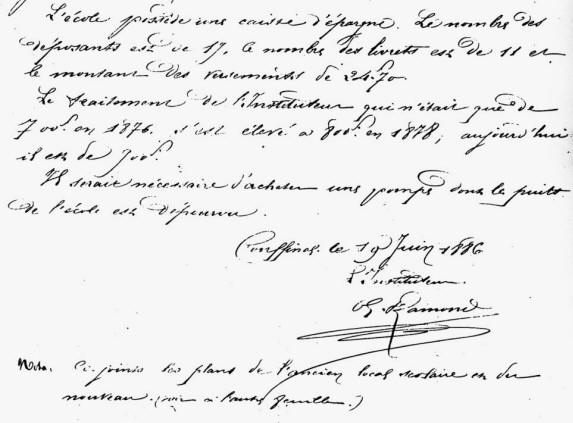 L'école possède une caisse d'épargne. Le nombre des
déposants est de 17, le nombre des livrets est de 11 et
le montant des versements de 24f.70.
Le traitement de l'Instituteur qui n'était que de
700f. en 1876, s'est élevé à 800f. en 1878; aujourd'hui
il est de 900f.
Il serait nécessaire d'acheter une pompe dont le puits
de l'école est dépourvu.
le 19 Juin 1886
L'Instituteur.
Ramond
Nota. Ci-joints les plans de l'ancien local scolaire et du
nouveau. (voir à l'autre feuille.)